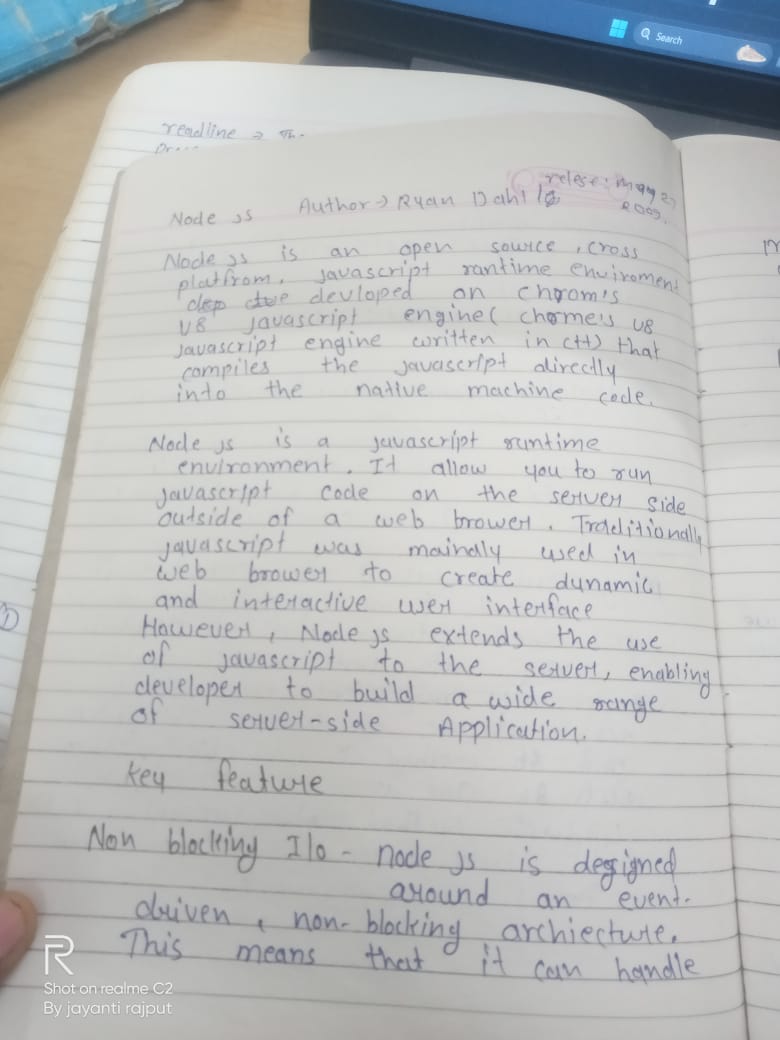 Search
readline → Th
Node js Author → Ryan Dahl
relese: May 27
2009.
Node js is an open source, cross
platfrom, javascript rantime enviroment
devloped on chrom's
v8 javascript engine( chome's v8
javascript engine written in c++) that
compiles the javascript directly
into the native machine code.
Node js is a javascript runtime
environment. It allow you to run
javascript code on the server side
outside of a web brower. Traditionally
javascript was maindly used in
web brower to create dynamic
and interactive user interface
However, Node js extends the use
of javascript to the server, enabling
developer to build a wide range
of server-side Application.
key feature
Non blocking I/o - node js is designed
around an event-
driven, non-blocking archiecture.
This means that it can handle
R
Shot on realme C2
By jayanti rajput